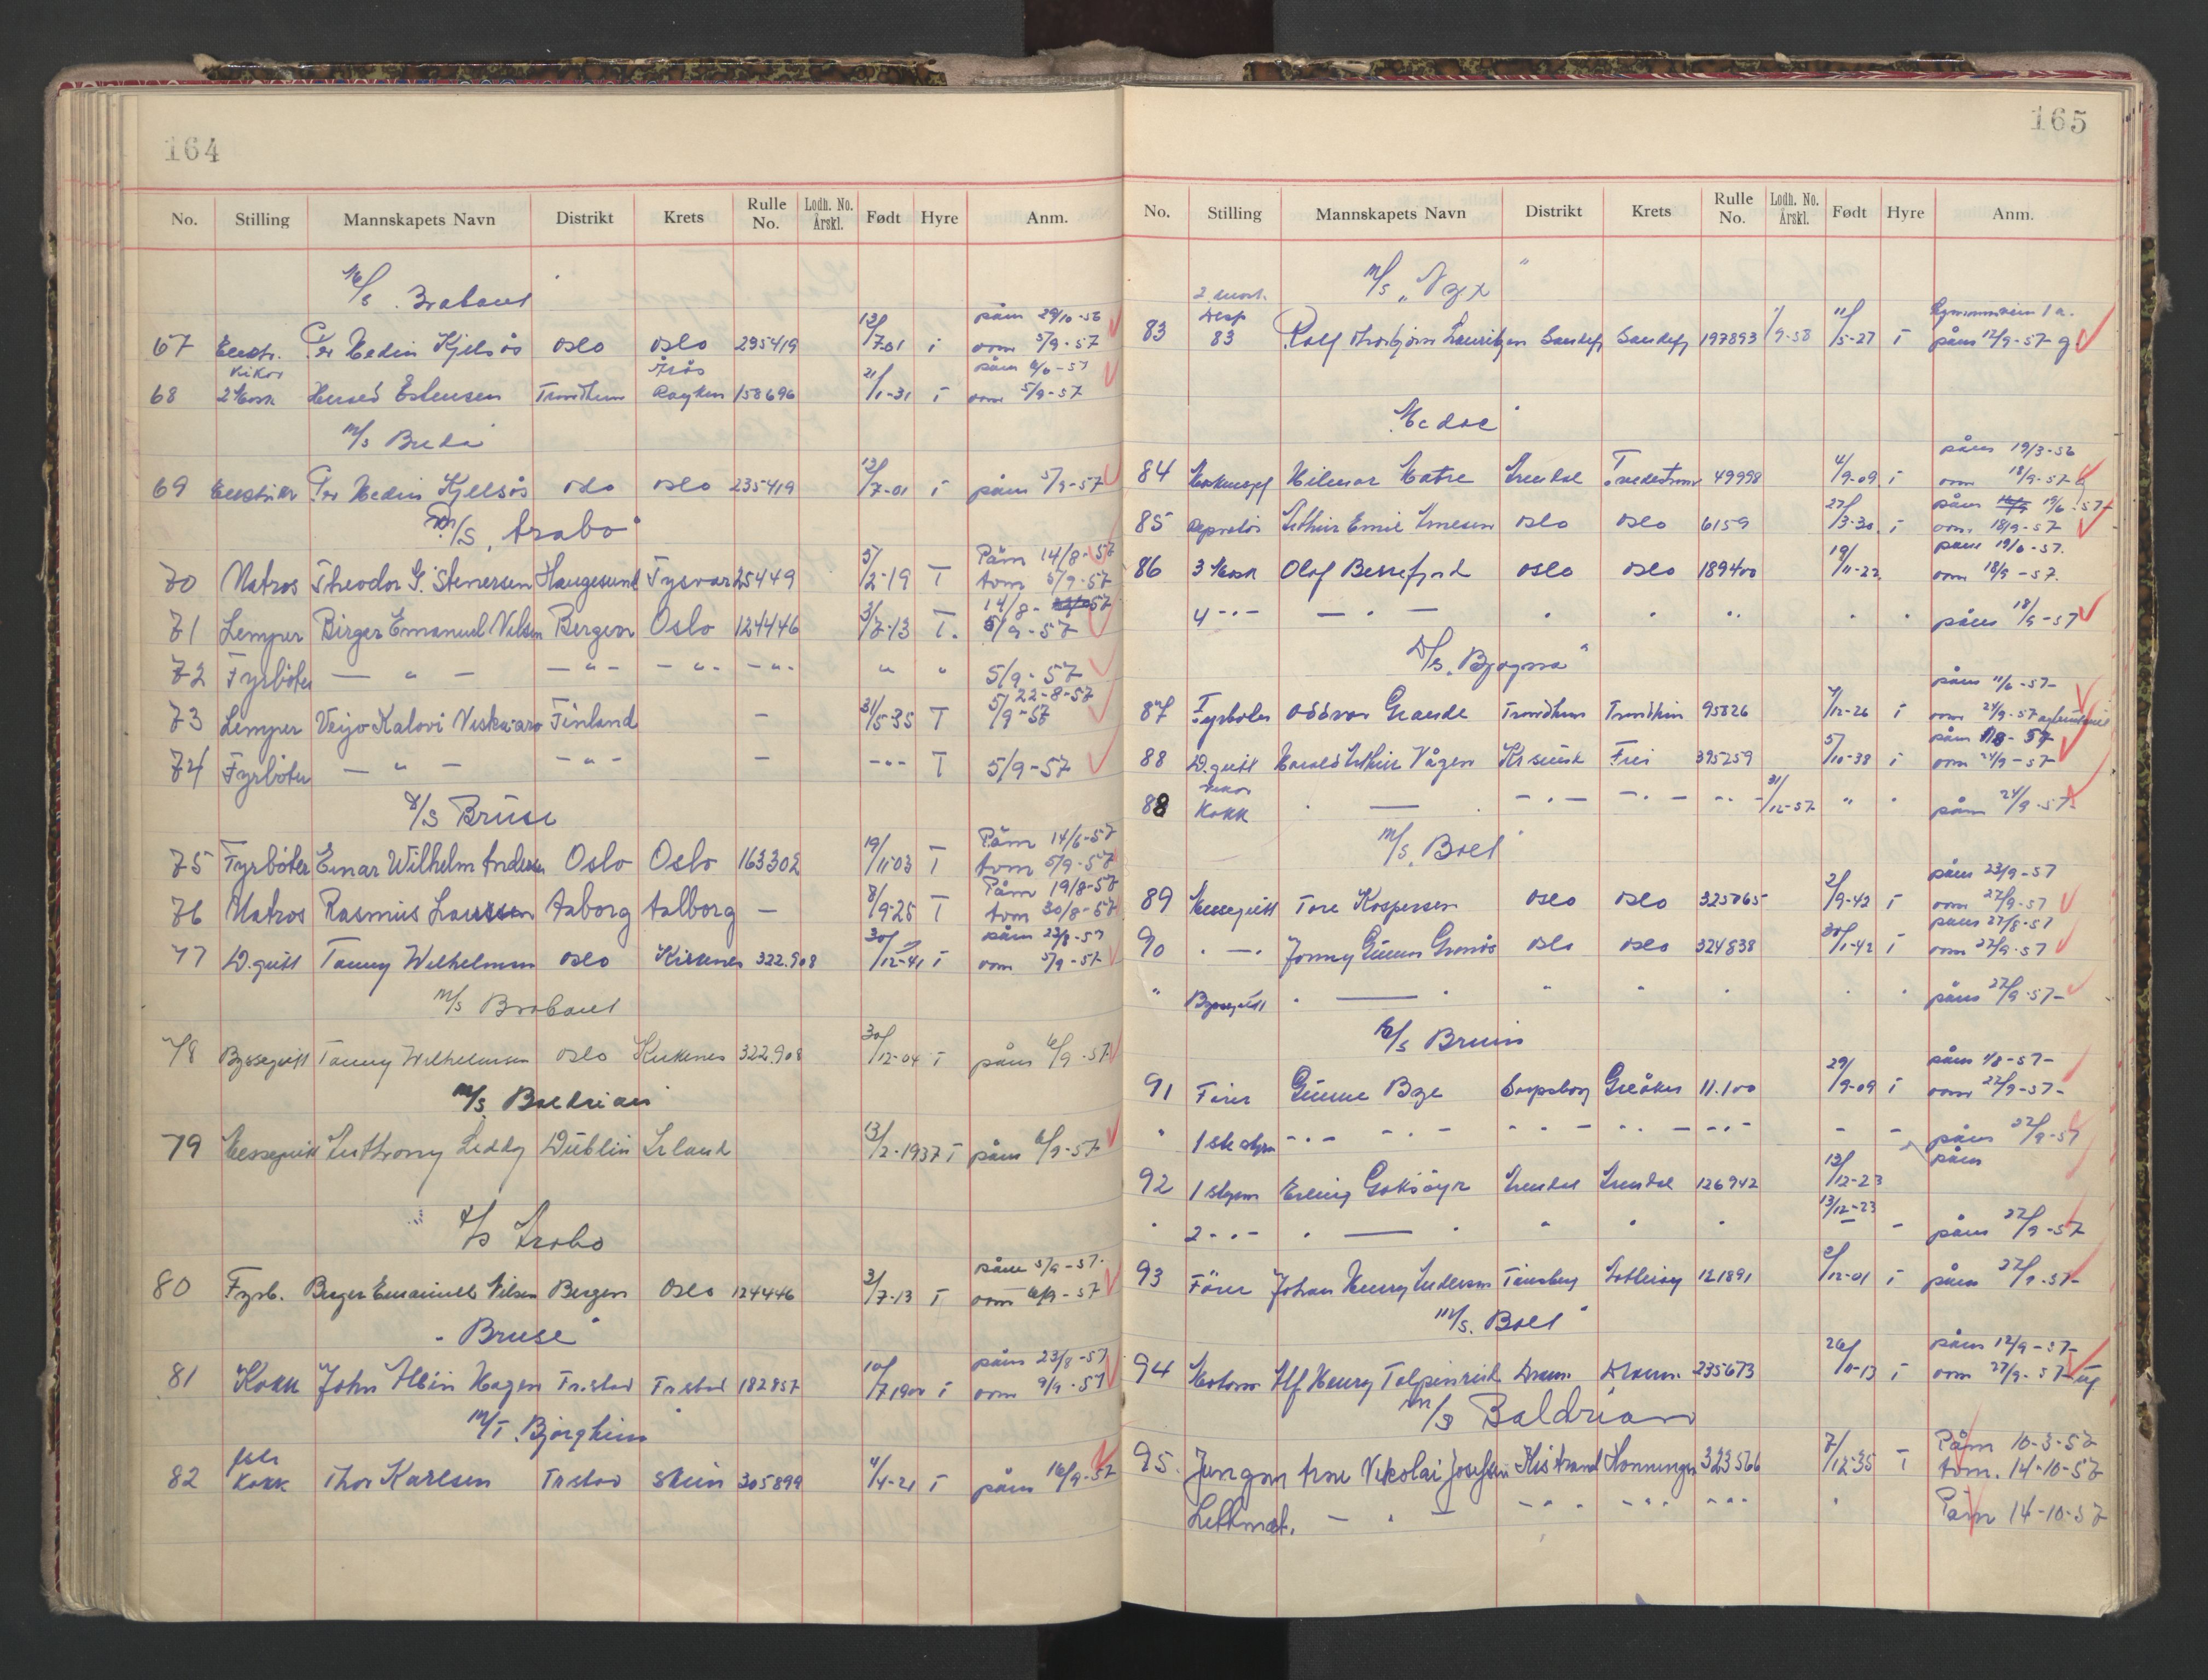 164
No. Stilling Mannskapets Navn Distrikt Krets Rulle No. Lodh. No. Årskl. Født Hyre Anm.
M/S "Brabant"
påm 29/10-56
67 Elektr. Per Hedin Kjelsås Oslo Oslo 235419 12/7-01 i avm 5/9-57
Vikar Årås påm 6/6-57
68 2 Mask Estensen Trondheim Røyken 158696 21/1-31 i avm 5/9-57
M/S Breda
69 Elektriker Per Hedin Kjelsås Oslo Oslo 235419 12/7-01 i påm 5/9-57
M/S "Arabo"
Påm 14/8-57
70 Matros Theodor G. Stenersen Haugesund Tysvar 25449 5/2-19 T Avm 5/9-57
14/8-57
71 Lemper Birger Emanuel Nilsen Bergen Oslo 124446 3/7-13 T. 5/9-57
72 Fyrbøter — " — — " — — " — — " — " " 5/9-57
22-8-57
73 Lemper Veijo Kalovi Viskaaro Finland — 31/5-35 T 5/9-57
74 Fyrbøter — " — — " — — — " — T 5/9-57
D/S Bruse
Påm 14/6-57
75 Fyrbøter Einar Wilhelm Andersen Oslo Oslo 163302 19/11-03 T Avm 5/9-57
Påm 19/8-57
76 Matros Rasmus Laursen Aaborg Aalborg — 8/9-25 T Avm 30/8-57
påm 23/8-57
77 D.gutt Tanny Wilhelmsen Oslo Kirkenes 322.908 30/12-41 i avm 5/9-57
M/S Brabant
78 Byssegutt Tanny Wilhelmsen Oslo Kirkenes 322.908 30/12-04 i påm 6/9-57
M/S Baldrian
79 Messegutt Anthony Leddy Dublin Irland 13/2-1937 i påm 6/9-57
D/S Arabo
påm 5/9-57.
80 Fyrb. Birger Emanuel Nilsen Bergen Oslo 124446 3/7-13 T avm 6/9-57
"Bruse"
påm 23/8-57
81 Kokk John Albin Hagen Fr.stad Fr.stad 182857 10/7 1900 i avm 9/9-57
M/T "Bjørgheim"
82 Kokk Thor Karlsen Fr.stad Skien 305899 4/4-21 i påm 16/9-57
165
No. Stilling Mannskapets Navn Distrikt Krets Rulle No. Lodh. No. Årskl. Født Hyre Anm.
M/S "Nyx"
2. mask.
83 Desp 83 Rolf Thorbjørn Lauritzen Sandefj Sandefj 197893 1/9-58 11/5-27 i påm 12/9-57
"Medoc"
påm 19/3-56
84 Hilmar Matre Arendal Tvedestrand 49998 4/9-09 i avm 18/9-57
påm 19/6-57
85 Reparatør Arthur Emil Arnesen Oslo Oslo 6159 27/3-30 i avm. 18/9-57
påm 19/6-57.
86 3 Mask Olaf Bessefjord Oslo Oslo 189400 19/11-22 avm 18/9-57.
4 - " - — " — " " " " " påm 18/9-57
D/S "Bjogna"
påm 11/6-57
87 Fyrbøter Oddvar Grande Trondheim Trondheim 95826 7/12-26 i avm 24/9-57
påm 1/8-57
88 D.gutt Harald Arthur Vågen Kr.sund Frei 395259 5/10-38 i avm 24/9-57
88 Kokk " — " — " — — " — — " — 31/12-57 " " påm 24/9-57
M/S "Boel"
påm 23/9-57
89 Messegutt Tore Kaspersen Oslo Oslo 325765 2/9-42 i avm 27/9-57
påm 27/8-57
90 " — " Jonny Gunnar Grønås Oslo Oslo 324838 30/1-42 i avm 27/9-57
" Byssegutt " — " " " " " " påm 27/9-57
D/S Bruin
påm 1/8-57
91 Fører Gunnar Bye Sarpsborg Greåker 11.100 29/9-09 i avm 22/9-57
" 1ste styrm — " — — " — — " — — " — — — påm 22/9-57
påm
92 1 styrm Erling Goksøyr Arendal Arendal 126942 13/12-23
13/12-23
" 2 - " - " — " " " " — påm 22/9-57
93 Fører Johan Henry Andersen Tønsberg 121891 9/12-01 i påm 22/9-57
M/S. "Boel"
påm 12/9-57
94 Motorm Alf Henry Talpinrud Dram. Dram. 235673 26/10-13 i avm 27/9-57
M/S Baldrian
Påm 10-3-57
95. Jungm Arne Nikolai Josefsen Kistrand Honningsv 323566 7/12-35 T Avm. 14-10-57
Lettmat. — " — — " " — " " — " " " Påm 14-10-57